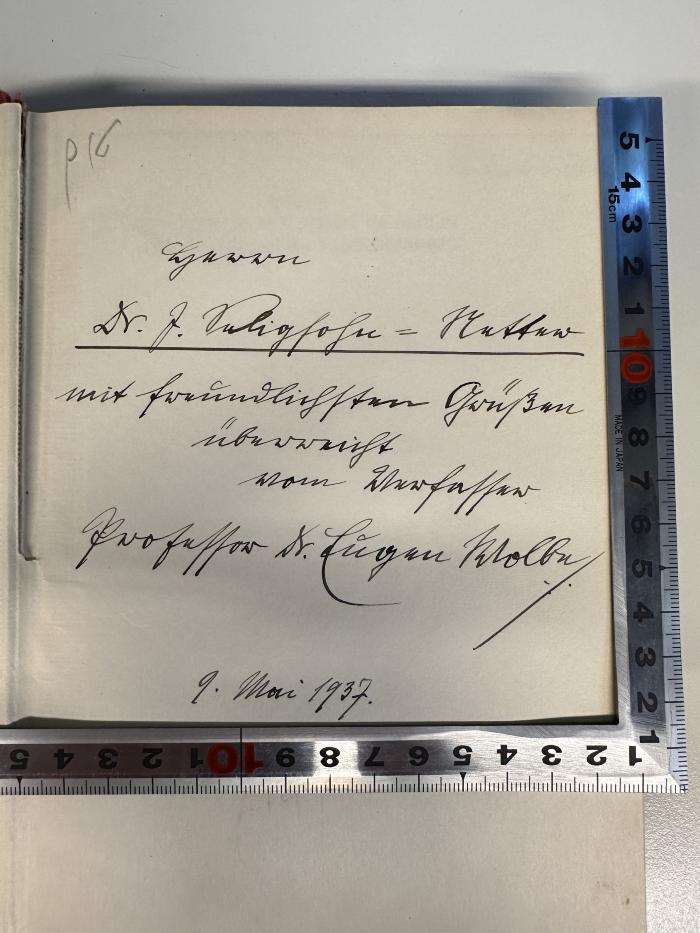 p 16
Herrn
Dr. J. Seligsohn = Netter
mit freundlichsten Grüßen
überreicht
vom Verfasser
Professor Dr. Eugen Wolbe
9. Mai 1937.
5 4 3 2 1 10 9 8 7 6 5 4 3 2 1
15cm
MADE IN JAPAN
5 4 3 2 1 10 9 8 7 6 5 4 3 2 1